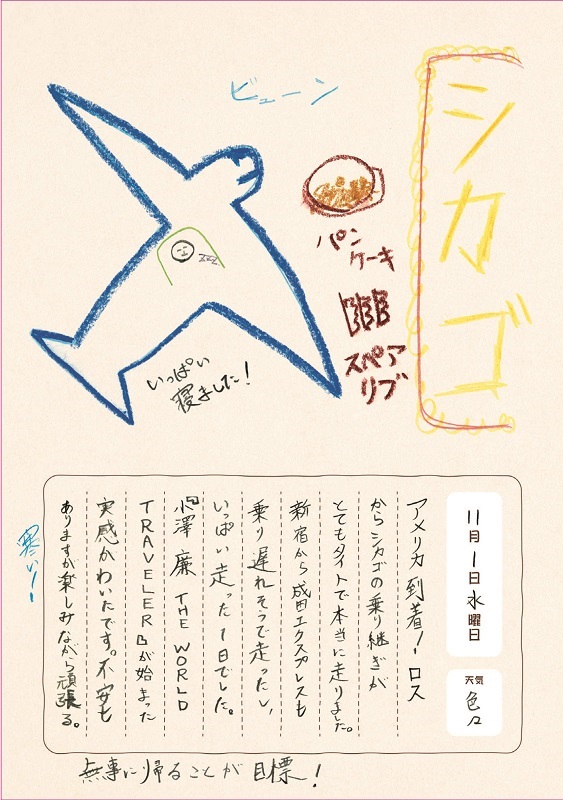 シカゴ
ビューン
パン
ケーキ
スペア
リブ
zzz
いっぱい
寝ました!
11月1日水曜日
天気
色々
アメリカ到着!ロス
からシカゴの乗り継ぎが
とてもタイトで本当に走りました。
新宿から成田エクスプレスも
乗り遅れそうで走ったし、
いっぱい走った1日でした。
『小澤廉 THE WORLD
TRAVELER』が始まった
実感がわいたです。不安も
ありますが楽しみながら頑張る。
寒いー!
無事に帰ることが目標!